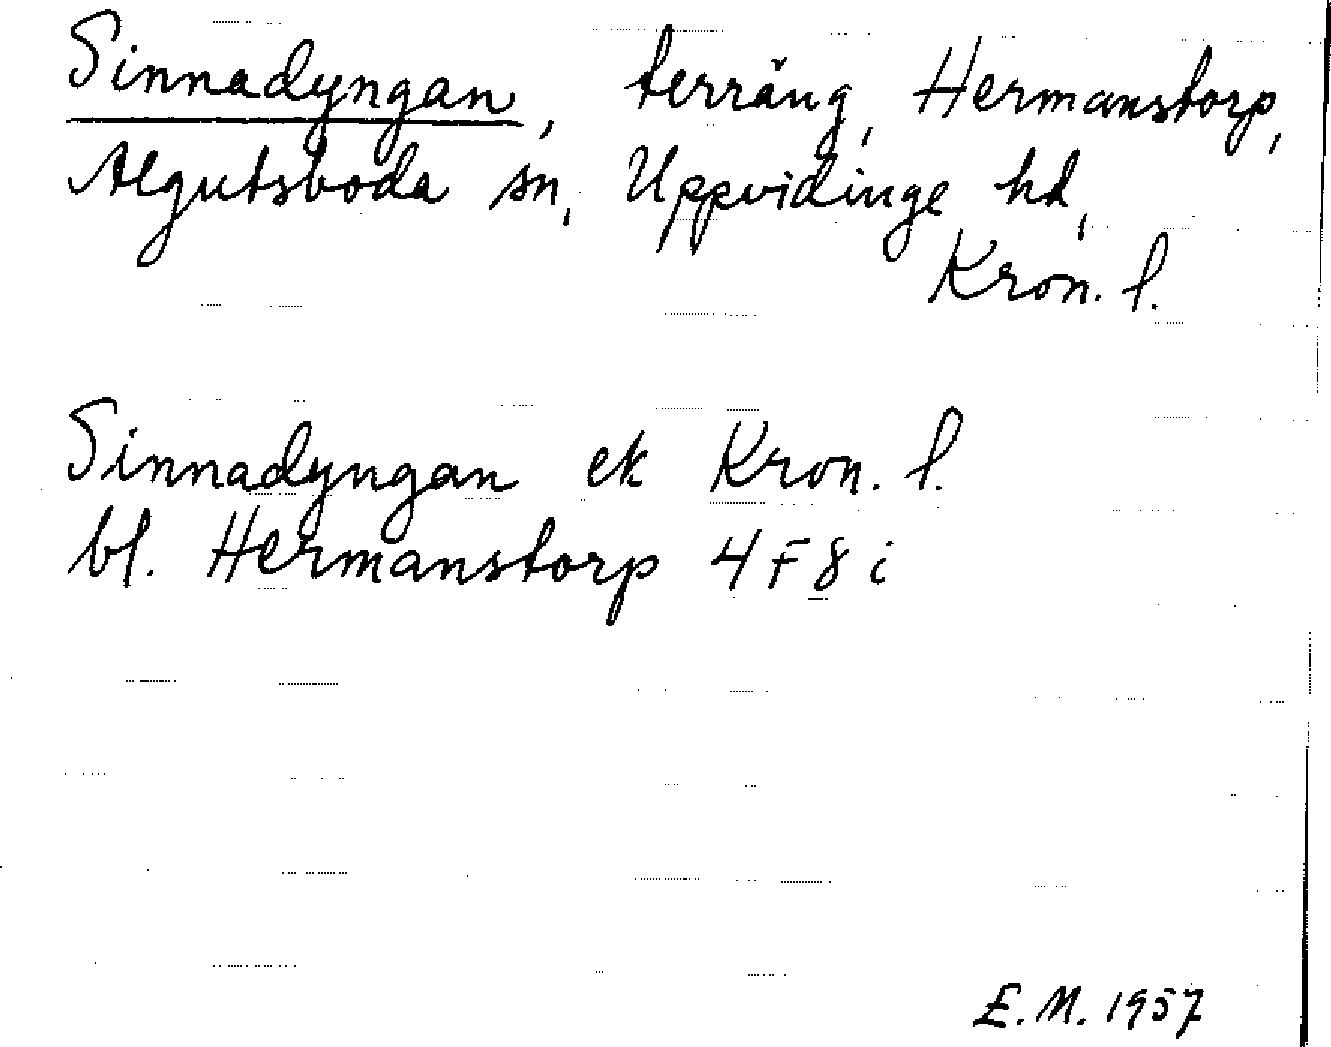 Sinnadyngan, terräng, Hermanstorp,
Algutsboda sn, Uppvidinge hd,
Kron. l.
Sinnadyngan ek Kron. l.
bl. Hermanstorp 4F8i
E.M. 1957